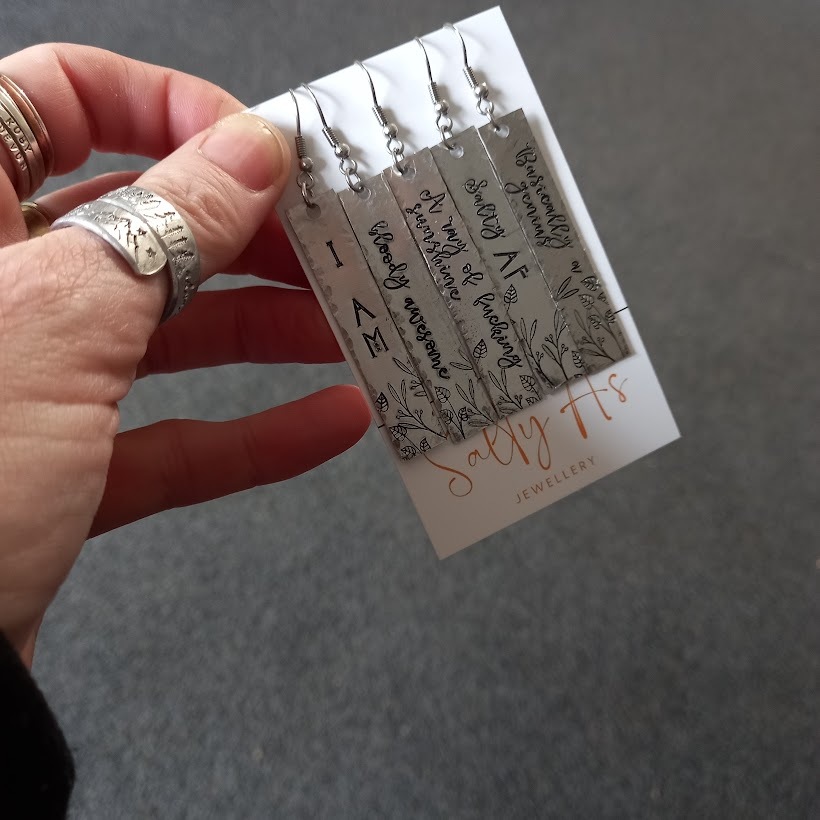 RUBY
DEVON
I AM
bloody awesome
A ray of fucking
sunshine
Salty AF
Basically a
genius
Salty As
JEWELLERY